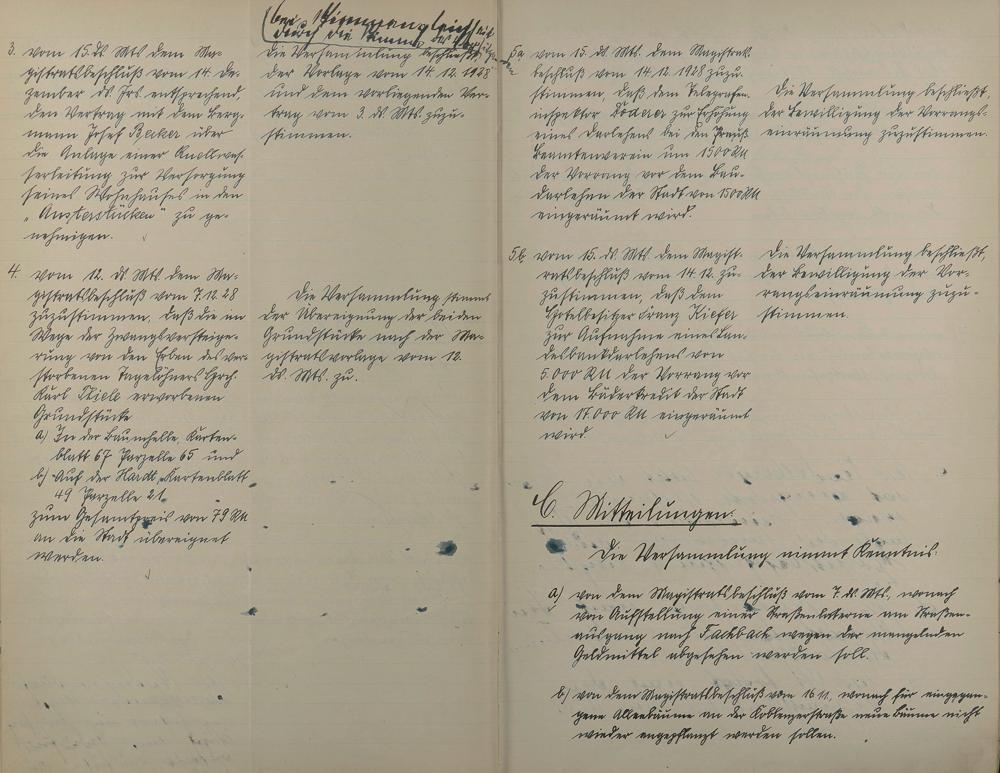 3. vom 15. ds Mts dem Ma-
gistratsbeschluß vom 14. De-
zember ds Jrs entsprechend,
den Vertrag mit dem Berg-
mann Josef Becker über
die Anlage einer Quellwas-
serleitung zur Versorgung
seines Wohnhauses in den
"Austerstücken" zu ge-
nehmigen.
(bei Stimmengleichheit
durch die Stimme des
die Versammlung beschließt
der Vorlage vom 14.12.1928
und dem vorliegenden Ver-
trag vom 3. ds. Mts. zuzu-
stimmen.
4. vom 12. ds Mts. dem Ma-
gistratsbeschluß vom 7.12.28
zuzustimmen, daß die im
Wege der Zwangsversteige-
rung von den Erben des ver-
storbenen Tagelöhners Hrch.
Karl Thiele erworbenen
Grundstücke
a) In der Baumhelle, Karten-
blatt 67 Parzelle 65 und
b) Auf der Hardt, Kartenblatt
49 Parzelle 21
zum Gesamtpreis von 79 RM
an die Stadt übereignet
werden.
Die Versammlung stimmt
der Übereignung der beiden
Grundstücke nach der Ma-
gistratsvorlage vom 12.
ds. Mts. zu.
5a vom 15. ds Mts. dem Magistrats
beschluß vom 14.12.1928 zuzu-
stimmen, daß dem Telegrafen
inspektor zur Erhöhung
eines Darlehens bei den Preuß
Beamtenverein um 1500 RM
der Vorrang vor dem Bau-
darlehen der Stadt von 1500 RM
eingeräumt wird.
Die Versammlung beschließt,
der Bewilligung der Vorrangs-
einräumung zuzustimmen.
5.b. vom 15. ds. Mts. dem Magist-
ratsbeschluß vom 14.12. zu-
zustimmen, daß dem
Hotelbesitzer Franz Kiefer
zur Aufnahme eines Lan-
desbankdarlehens von
5.000 RM der Vorrang vor
dem Bäderkredit der Stadt
von 17.000 RM eingeräumt
wird.
Die Versammlung beschließt,
der Bewilligung der Vor-
rangseinräumung zuzu-
stimmen.
C. Mitteilungen.
Die Versammlung nimmt Kenntnis:
a) von dem Magistratsbeschluß vom 7. ds. Mts., wonach
von Aufstellung einer Straßenlaterne am Straßen-
ausgang nach Fachbach wegen der mangelnden
Geldmittel abgesehen werden soll.
b) von dem Magistratsbeschluß vom 16 11., wonach für eingegan-
gene Alleebäume an der Koblenzerstraße neue Bäume nicht
wieder angepflanzt werden sollen.